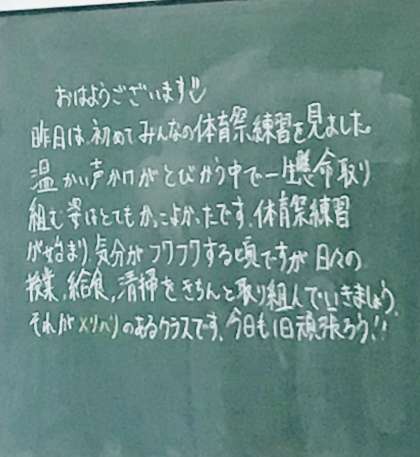 おはようございます
昨日は、初めてみんなの体育祭練習を見ました。
温かい声かけがとびかう中で一生懸命取り
組む姿はとてもかっこよかったです。体育祭練習
が始まり、気分がフワフワする頃ですが日々の
授業、給食、清掃をきちんと取り組んでいきましょう。
それがメリハリのあるクラスです。今日も1日頑張ろう!!